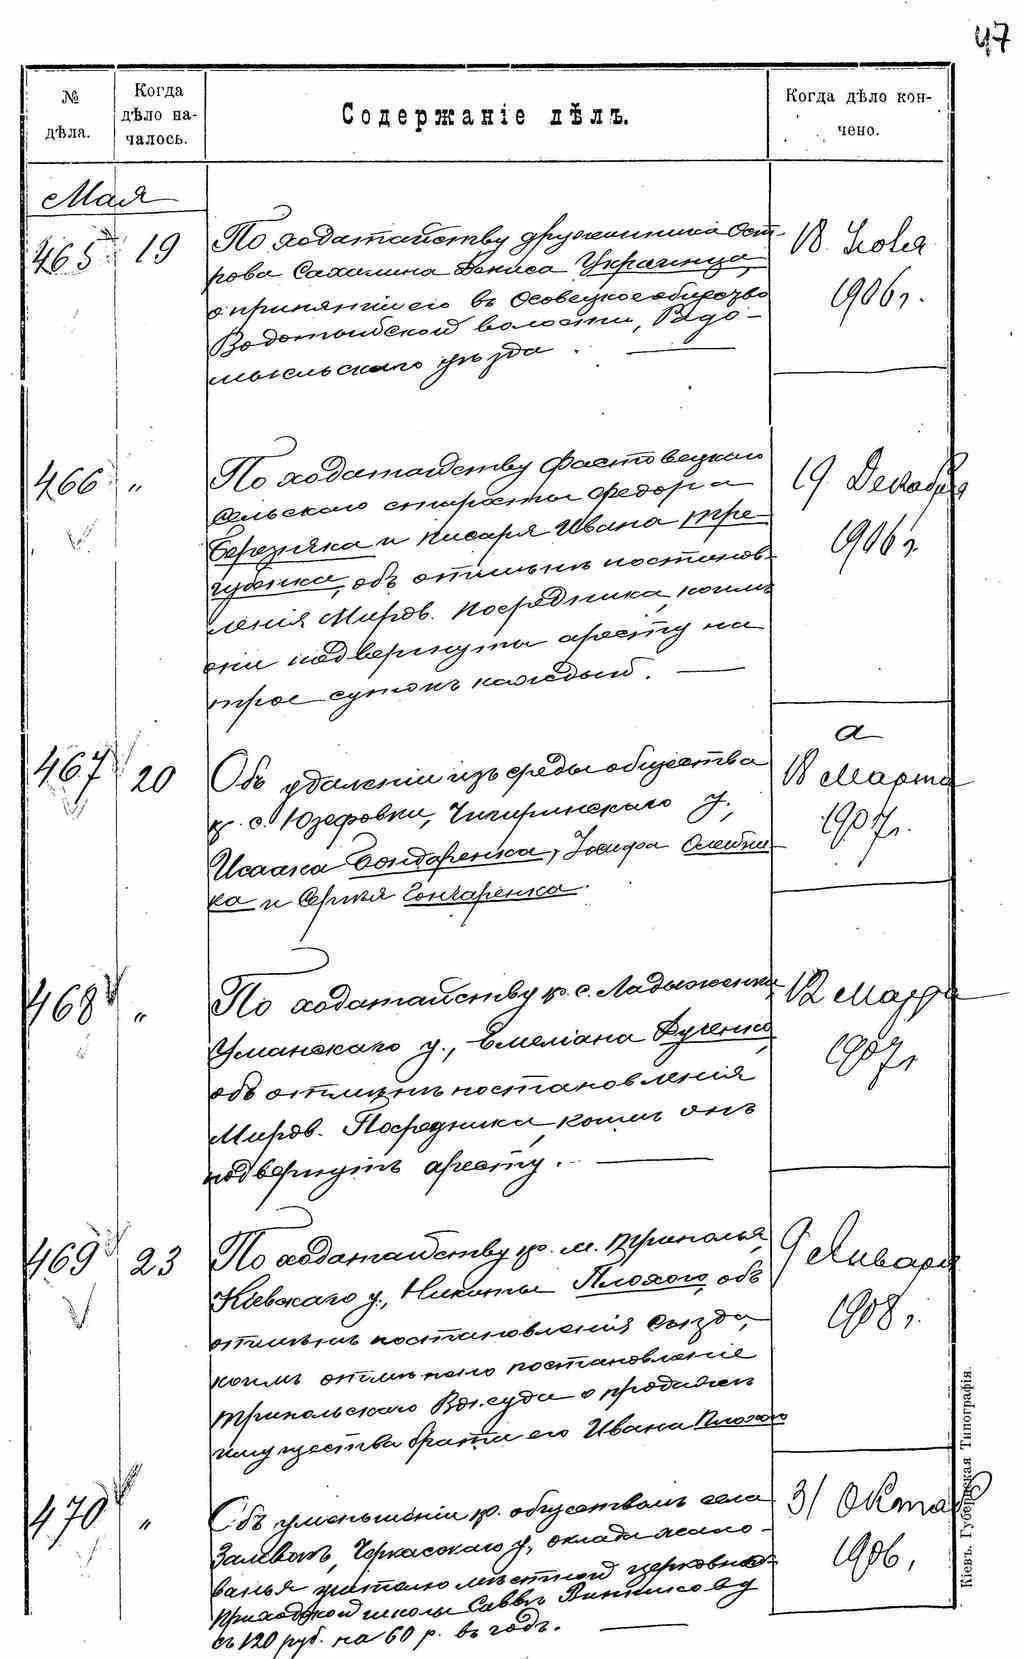 47
№ дѣла.
Когда дѣло началось.
Содержаніе дѣлъ.
Когда дѣло кончено.
Мая
465 19
По ходатайству дружинника Ост-
рова Сахалина Дениса Украинца,
о принятіи его въ Осовецкое общество
Водотыйской волости, Радо-
мысльскаго уѣзда.
18 Ноября
1906 г.
466 "
По ходатайству Фастовецкаго
сельскаго старосты Федора
Березняка и писаря Ивана Тре-
губенка, объ отмѣнѣ постанов-
ленія Миров. Посредника, коимъ
они подвергнуты аресту на
трое сутокъ каждый.
19 Декабря
1906 г.
467 20
Объ удаленіи изъ среды общества
кр. с. Юзефовки, Чигиринскаго у.,
Исаака Бондаренка, Іосифа Олейни-
ка и Сергѣя Гончаренка.
а
18 Марта
1907 г.
468 "
По ходатайству кр. с. Ладыженки,
Уманскаго у., Емеліана Луценко,
объ отмѣнѣ постановленія
Миров. Посредника, коимъ онъ
подвергнутъ аресту.
12 Марта
1907 г.
469 23
По ходатайству кр. м. Триполья,
Кіевскаго у., Никиты Плохого, объ
отмѣнѣ постановленія Съѣзда,
коимъ отмѣнено постановленіе
Трипольскаго Вол. суда о продажѣ
имущества брата его Ивана Плохого
9 Января
1908 г.
470 "
Объ уменьшеніи кр. обществомъ села
Залевокъ, Черкасскаго у., оклада жало-
ванья учителю мѣстной церковно-
приходской школы Саввѣ
съ 120 руб. на 60 р. въ годъ.
31 Октяб
1906 г.
Кіевъ. Губернская Типографія.